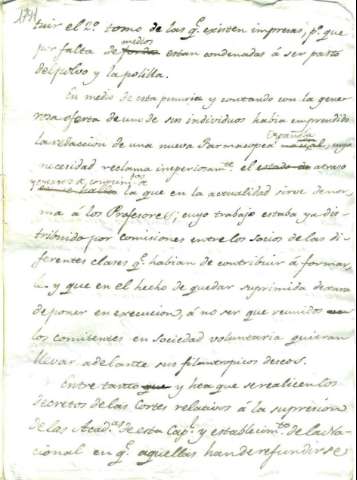 tuir el 2º tomo de las q.e existen impresas, p.r que
por falta de fondos medios estan condenadas á ser pasto
del polvo y la polilla.
En medio de esta penuria y contando con la gene-
rosa oferta de uno de sus individuos habia emprendido
la redaccion de una nueva Farmacopea Española, cuya
necesidad reclama imperiosam.te el estado de atraso
la que en la actualidad sirve de nor-
ma á los Profesores, cuyo trabajo estaba ya dis-
tribuido por comisiones entre los socios de las di-
ferentes clases q.e habian de contribuir á formar-
la y que en el hecho de quedar suprimida dexara
de poner en execucion, á no ser que reunidos
los comitentes en sociedad voluntaria quieran
llevar adelante sus filantropicos deseos.
Entre tanto que y hta que se realicen los
decretos de las Cortes relativos á la supresion
de las Acad.as de esta Cap.l y establecim.to de la Na-
cional en q.e aquellas han de refundirse